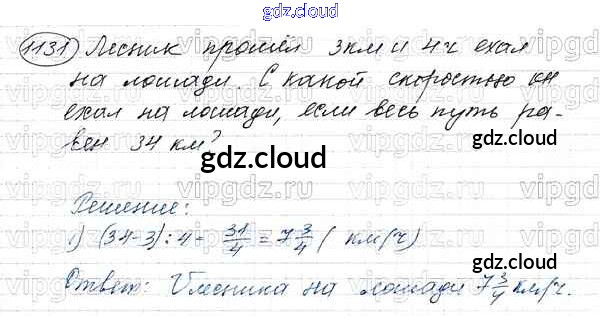 gdz.cloud
1131) Лесник прошёл 3 км и 4 ч ехал
на лошади. С какой скоростью он
ехал на лошади, если весь путь ра-
вен 34 км?
gdz.cloud
gdz.cloud
Решение:
1) (34-3):4= 31/4 = 7 3/4 ( км/ч)
Ответ: V лесника на лошади 7 3/4 км/ч.
gdz.cloud